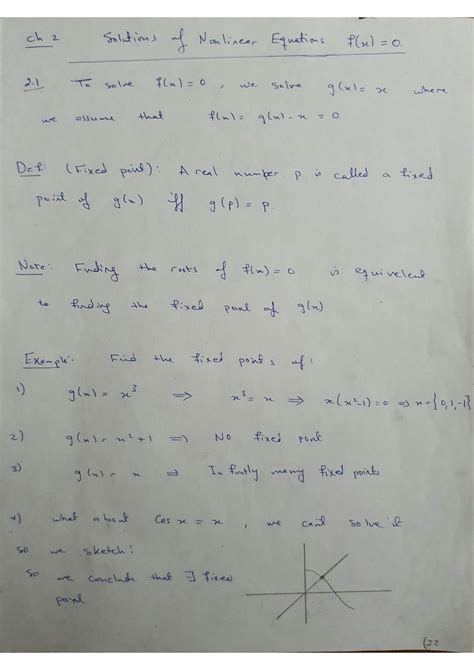 Ch 2 Solutions of Nonlinear Equations f(x) = 0.
2.1 To solve f(x) = 0, we solve g(x) = x where
we assume that f(x) = g(x) - x = 0
Def: (Fixed point): A real number p is called a fixed
point of g(x) iff g(p) = p.
Note: Finding the roots of f(x) = 0 is equivelent
to finding the fixed point of g(x)
Example: Find the fixed points of:
1) g(x) = x³ ⇒ x³ = x ⇒ x(x²-1) = 0 ⇒ x = {0, 1, -1}
2) g(x) = x² + 1 ⇒ No fixed point
3) g(x) = x ⇒ Infinitly many fixed points
4) what about Cos x = x, we can't solve it
so we sketch:
so we conclude that ∃ fixed
point
(22